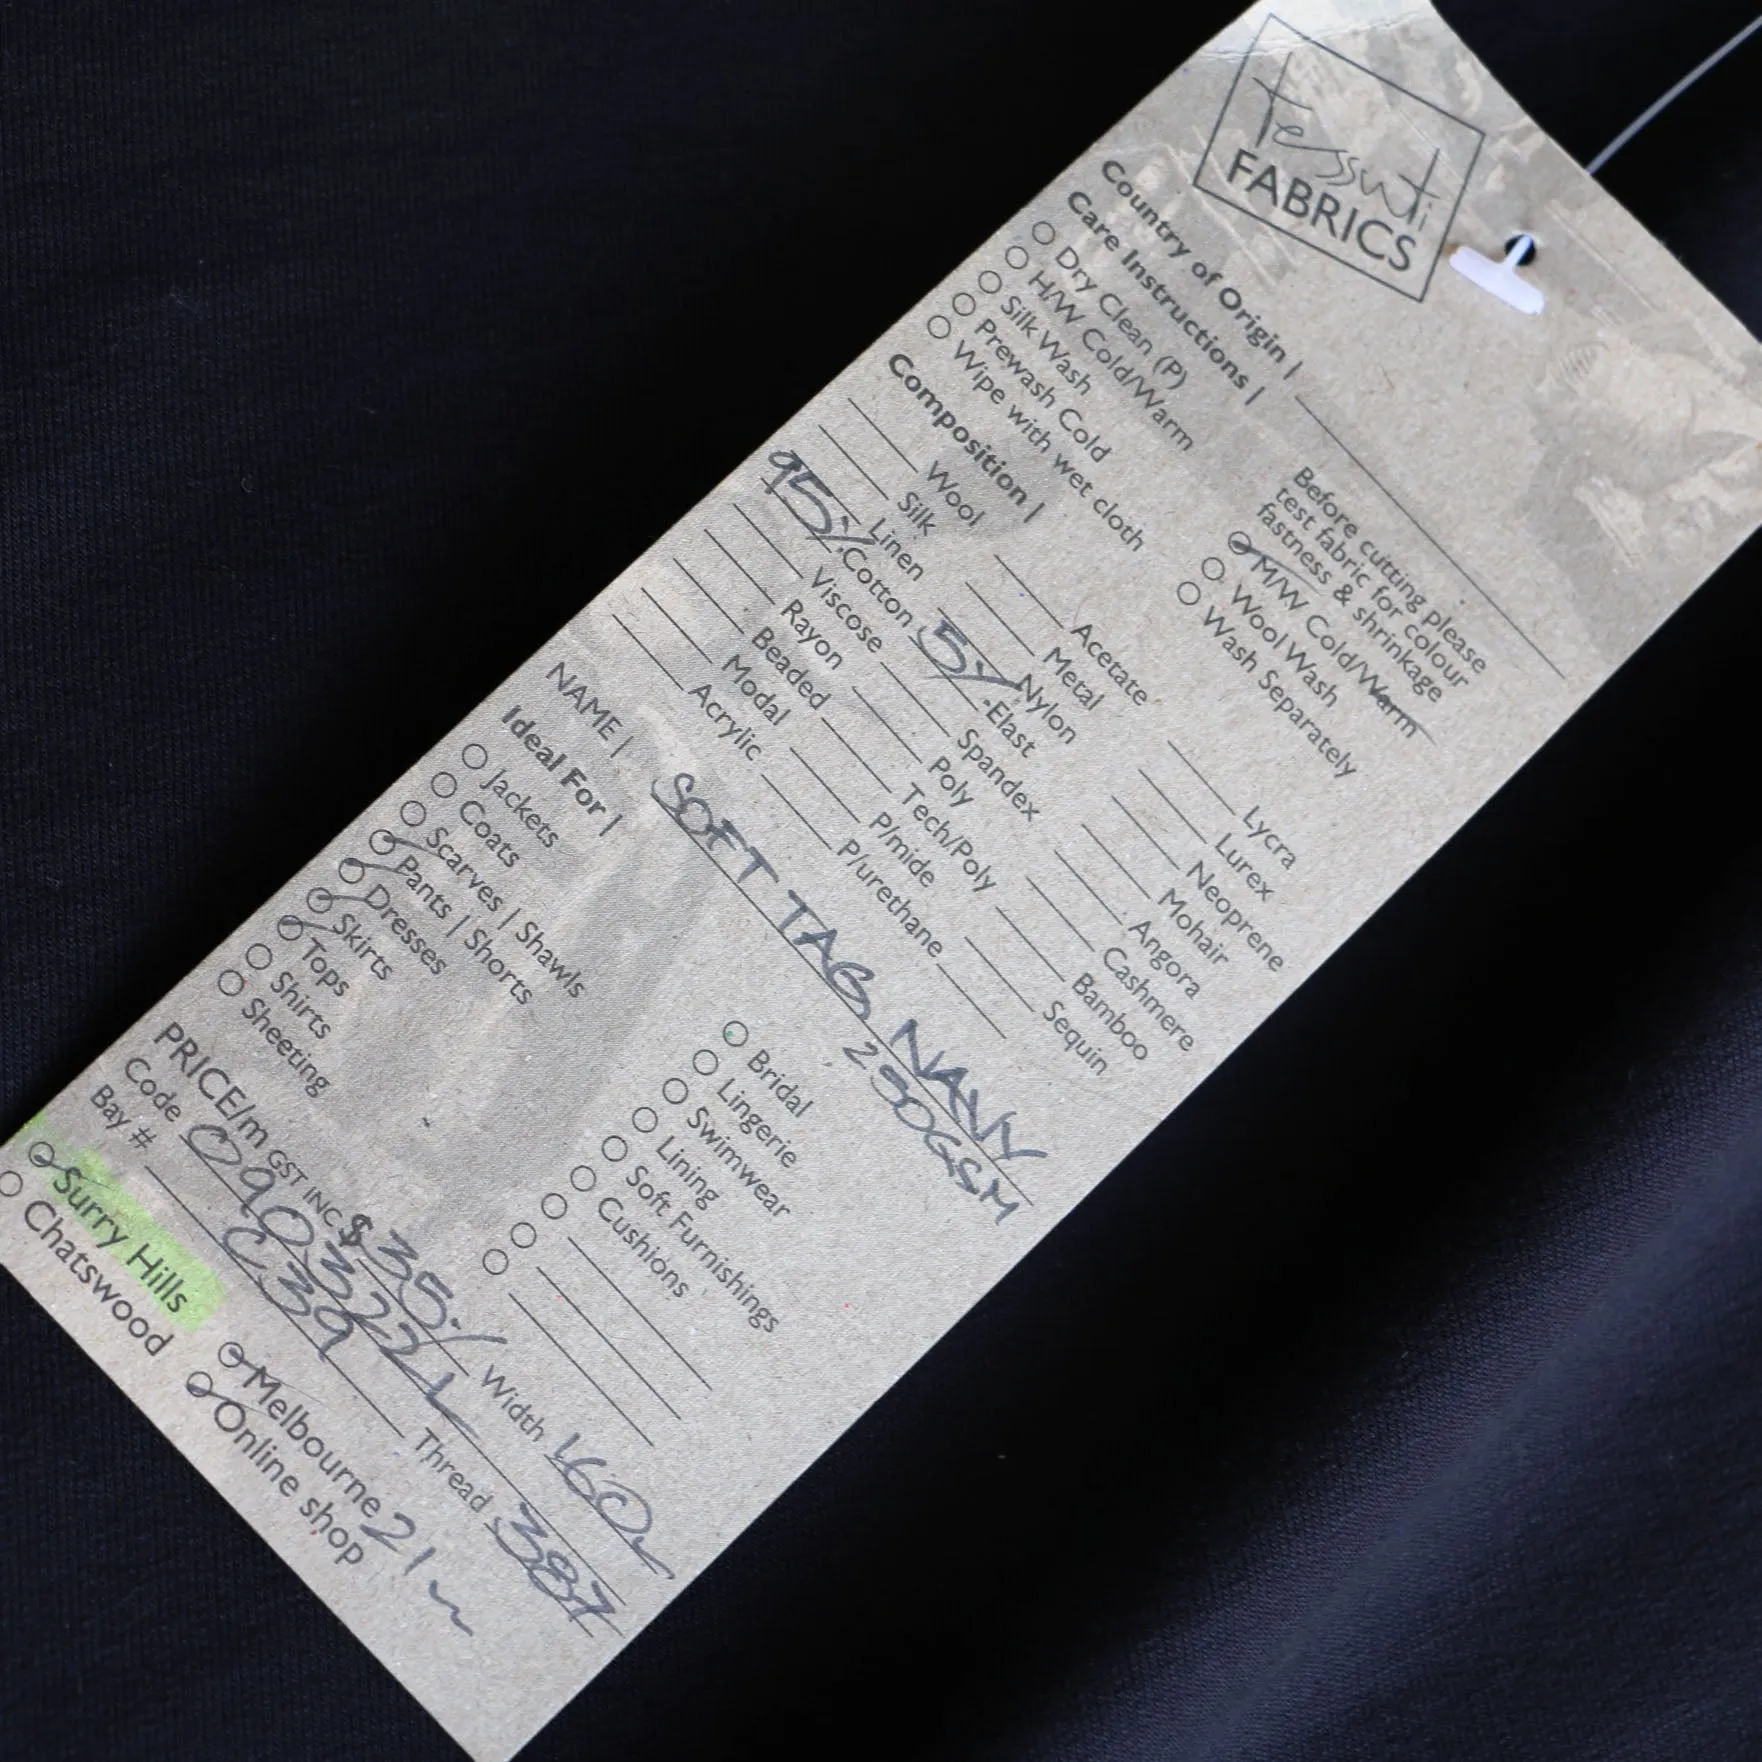 tessuti
FABRICS
Country of Origin |
Care Instructions |
Dry Clean (P)
H/W Cold/Warm
Silk Wash
Prewash Cold
Wipe with wet cloth
Before cutting please
test fabric for colour
fastness & shrinkage
M/W Cold/Warm
Wool Wash
Wash Separately
Composition |
Wool
Silk
Linen
95% Cotton
Viscose
Rayon
Beaded
Modal
Acrylic
Acetate
Metal
Nylon
5% Elast
Spandex
Poly
Tech/Poly
P/mide
P/urethane
Lycra
Lurex
Neoprene
Mohair
Angora
Cashmere
Bamboo
Sequin
NAME | SOFT TAG NAVY
250GSM
Ideal For |
Jackets
Coats
Scarves | Shawls
Pants | Shorts
Dresses
Skirts
Tops
Shirts
Sheeting
Bridal
Lingerie
Swimwear
Lining
Soft Furnishings
Cushions
PRICE/m GST INC $35 Width 160
Code Thread 387
Bay # C39
Surry Hills
Chatswood
Melbourne 21m
Online shop